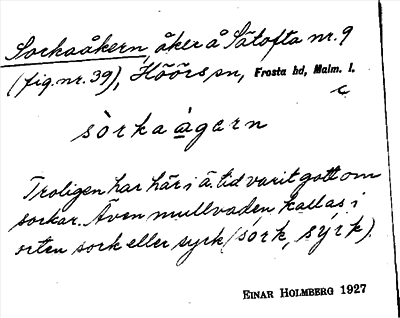 Sorkaåkern, åker å Sätofta nr. 9
(fig. nr. 39), Höörs sn, Frosta hd, Malm. l.
c
sòrkaàgarn
Troligen har här i ä. tid varit gott om
sorkar. Även mullvaden kallas i
orten sork eller syrk (sórk, sýrk).
EINAR HOLMBERG 1927